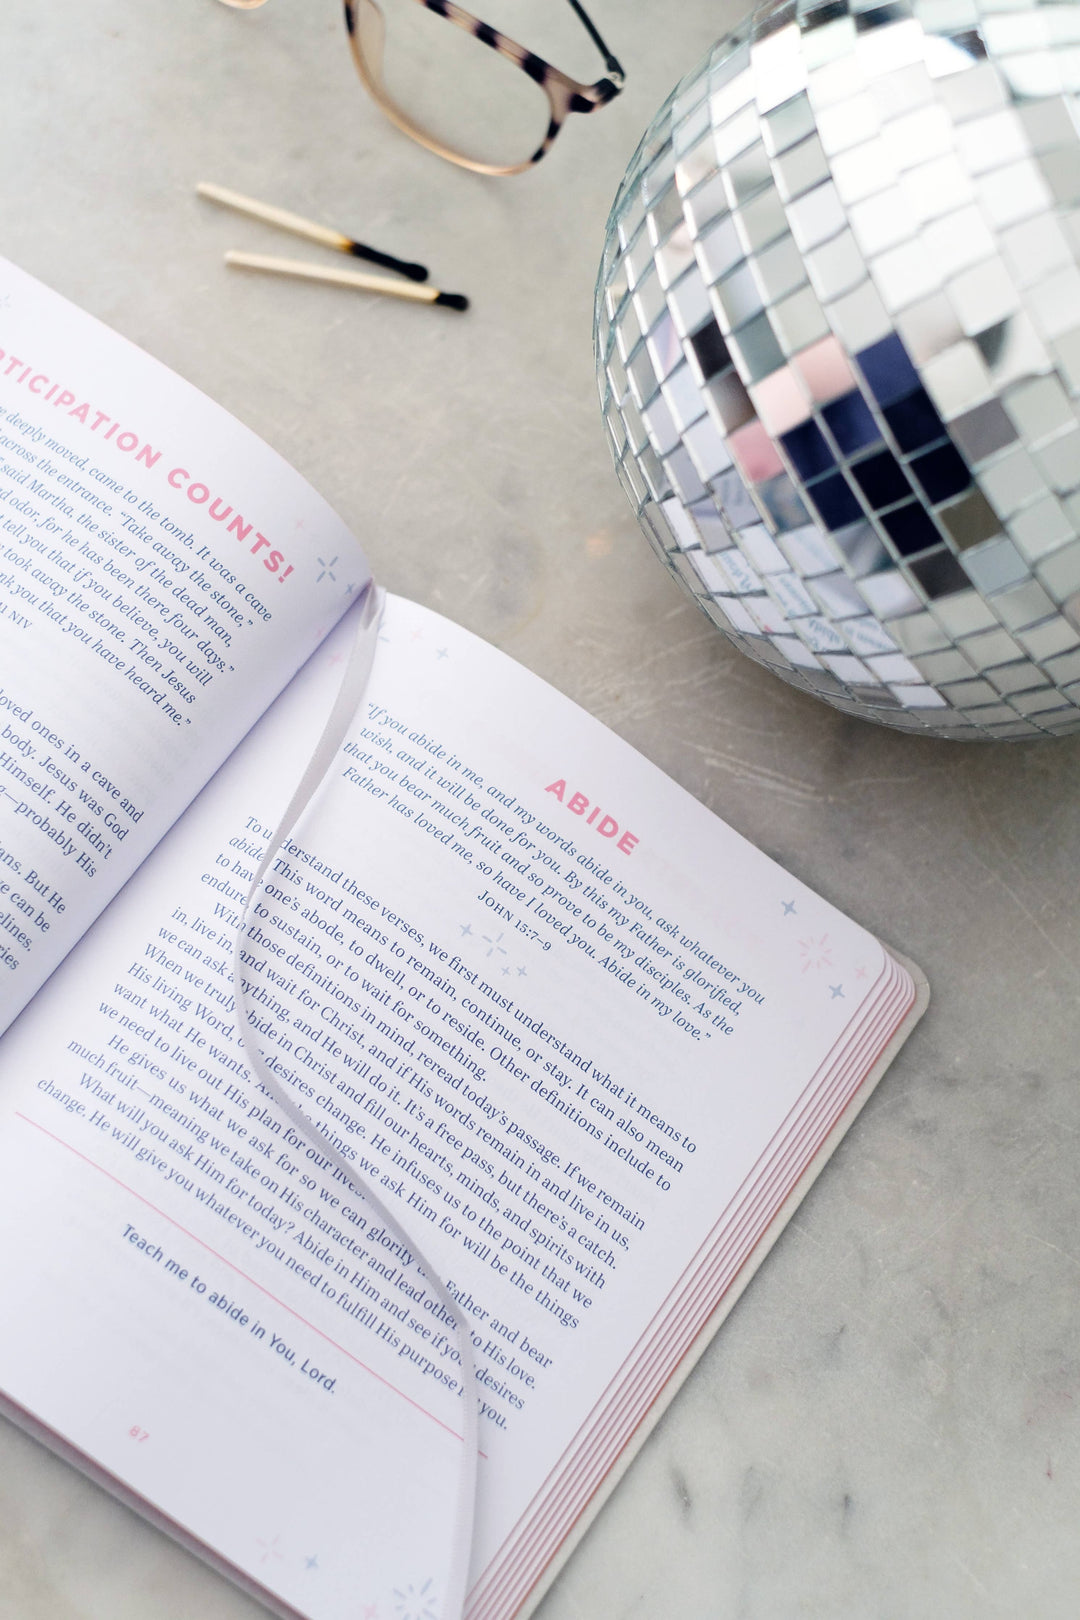 PARTICIPATION COUNTS!
deeply moved, came to the tomb. It was a cave
across the entrance. “Take away the stone,”
said Martha, the sister of the dead man,
odor, for he has been there four days.”
tell you that if you believe, you will
took away the stone. Then Jesus
you that you have heard me.”
NIV
loved ones in a cave and
body. Jesus was God
Himself. He didn’t
—probably His
But He
can be
ABIDE
“If you abide in me, and my words abide in you, ask whatever you
wish, and it will be done for you. By this my Father is glorified,
that you bear much fruit and so prove to be my disciples. As the
Father has loved me, so have I loved you. Abide in my love.”
JOHN 15:7–9
To understand these verses, we first must understand what it means to
abide. This word means to remain, continue, or stay. It can also mean
to have one’s abode, to dwell, or to reside. Other definitions include to
endure, to sustain, or to wait for something.
With those definitions in mind, reread today’s passage. If we remain
in, live in, and wait for Christ, and if His words remain in and live in us,
we can ask anything, and He will do it. It’s a free pass, but there’s a catch.
When we truly abide in Christ and fill our hearts, minds, and spirits with
His living Word, our desires change. He infuses us to the point that we
want what He wants. And the things we ask Him for will be the things
we need to live out His plan for our lives.
He gives us what we ask for so we can glorify the Father and bear
much fruit—meaning we take on His character and lead others to His love.
What will you ask Him for today? Abide in Him and see if your desires
change. He will give you whatever you need to fulfill His purpose for you.
Teach me to abide in You, Lord.
87